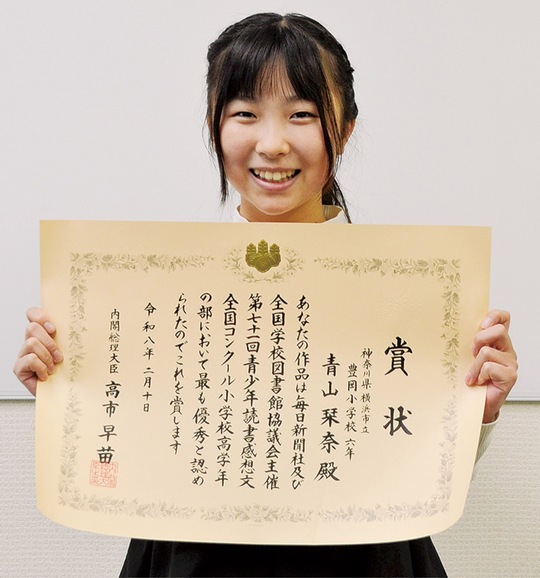 賞状
神奈川県横浜市立
豊岡小学校 六年
青山 栞奈 殿
あなたの作品は毎日新聞社及び
全国学校図書館協議会主催
第七十一回青少年読書感想文
全国コンクール小学校高学年
の部において最も優秀と認め
られたのでこれを賞します
令和八年二月十日
内閣総理大臣 高市早苗